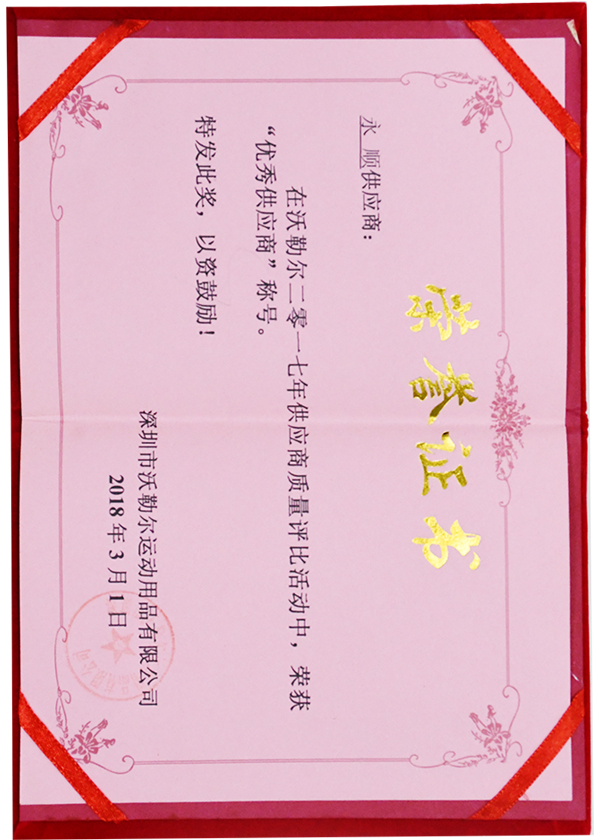 荣誉证书
永 顺供应商：
在沃勒尔二零一七年供应商质量评比活动中，荣获
“优秀供应商”称号。
特发此奖，以资鼓励！
深圳市沃勒尔运动用品有限公司
2018年3月1日